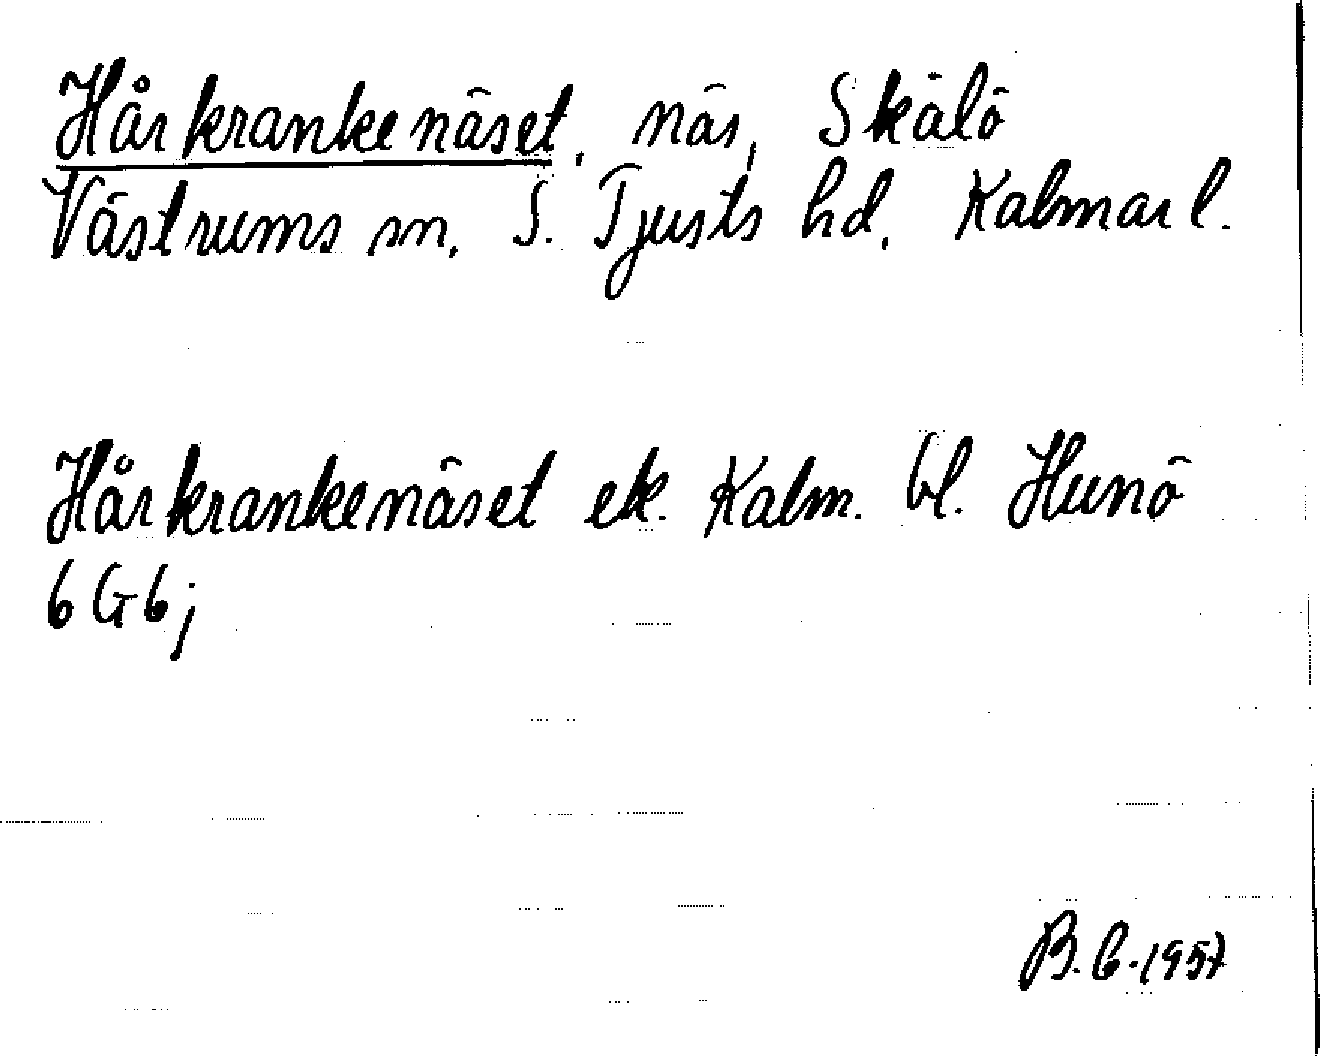 Hårkrankenäset, näs, Skälö
Västrums sn. S. Tjusts hd. Kalmar l.
Hårkrankenäset ek. Kalm. bl. Hunö
6G6j
B.C. 1957